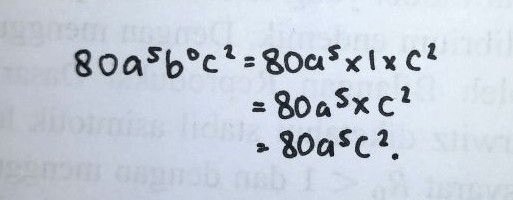 80a⁵b⁰c² = 80a⁵ x 1 x c²
= 80a⁵ x c²
= 80a⁵c².